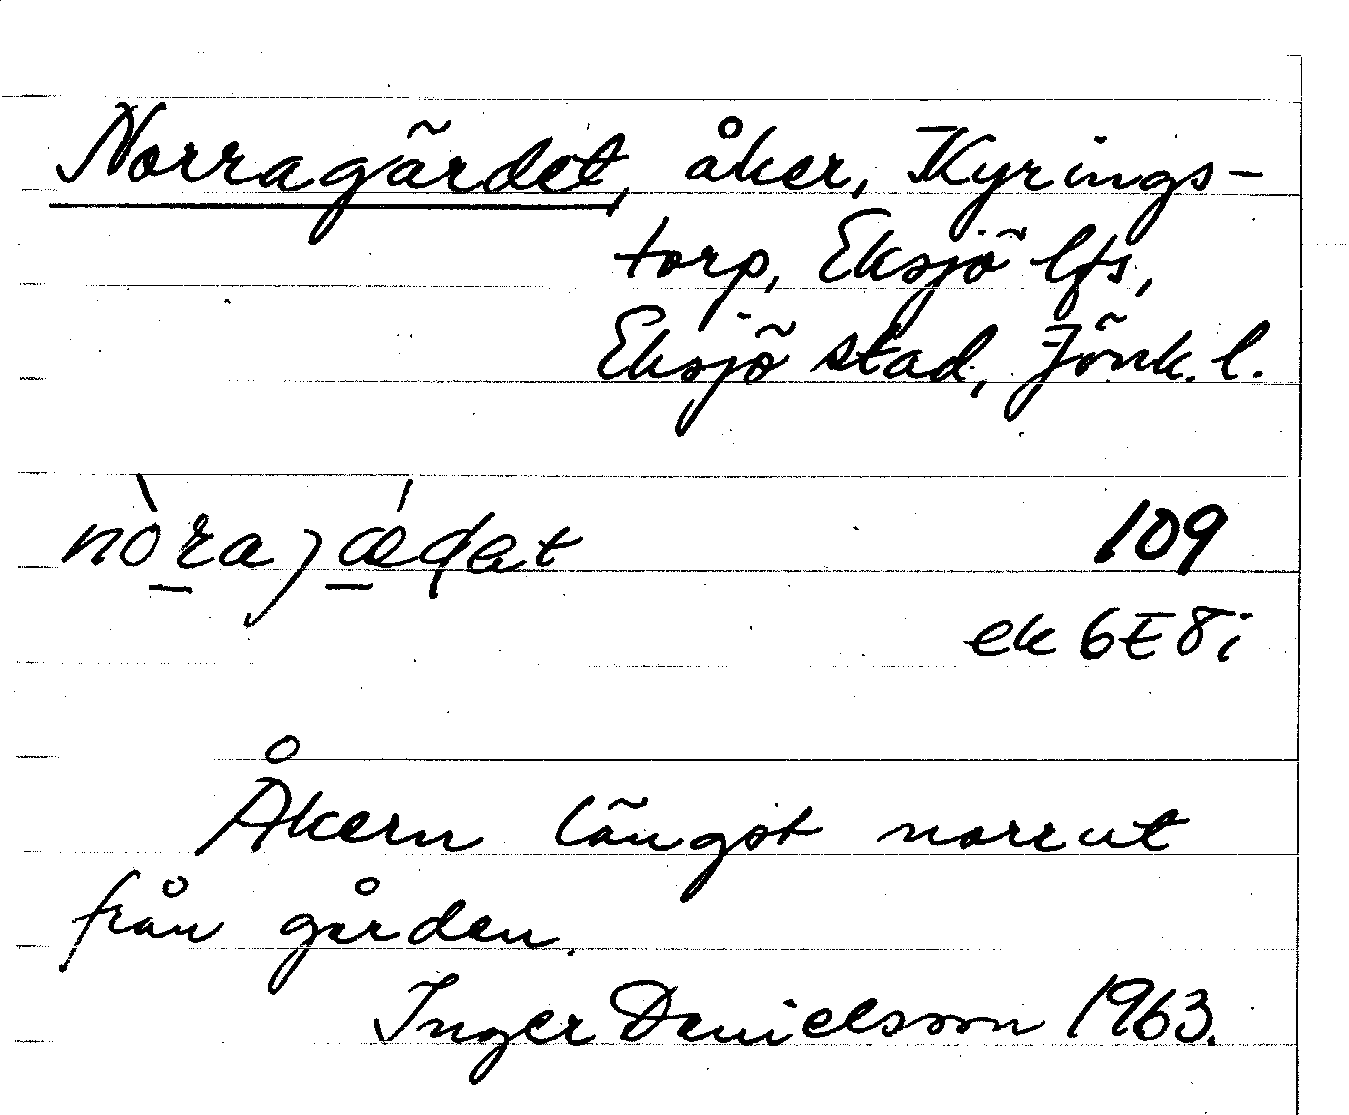 Norragärdet, åker, Kyrings-
torp, Eksjö lfs,
Eksjö stad, Jönk. l.
109
ek 6E8i
Åkern längst norrut
från gården.
Inger Danielsson 1963.